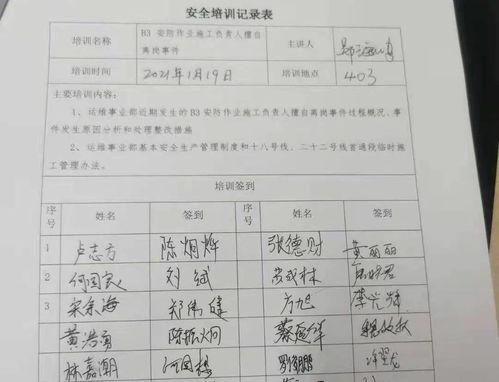 安全培训记录表
培训名称 B3 安防作业施工负责人擅自离岗事件 主讲人
培训时间 2021年1月19日 培训地点 403
主要培训内容：
1、运维事业部近期发生的 B3 安防作业施工负责人擅自离岗事件过程概况、事
件发生原因分析和处理整改措施
2、运维事业部基本安全生产管理制度和十八号线、二十二号线首通段临时施
工管理办法。
培训签到
序号 姓名 签到 序号 姓名 签到
1 卢志方 陈炯烨 张德财 黄丽丽
2 何国良 刘斌
3 宋余海 郑伟健 方旭
黄浩勇 陈振火同
林嘉潮